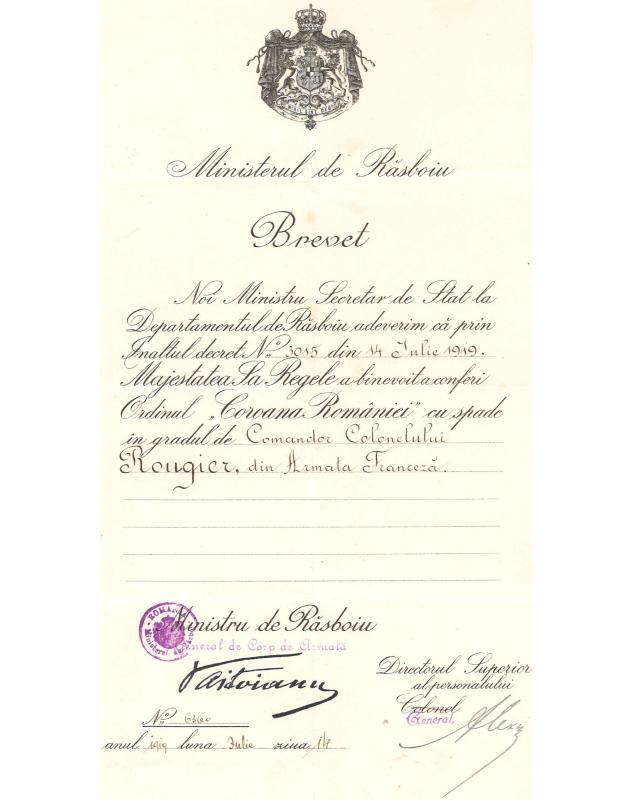 NIHIL SINE DEO
Ministerul de Răsboiu
Brevet
Noi Ministru Secretar de Stat la
Departamentul de Răsboiu adeverim că prin
Inaltul decret No. 3015 din 14 Iulie 1919.
Majestatea Sa Regele a binevoit a conferi
Ordinul „Coroana României" cu spade
în gradul de Comandor Colonelului
Rougier, din Armata Franceză.
ROMANIA
Ministerul de
Ministru de Răsboiu
General de Corp de Armată
Văitoianu
Directorul Superior
al personalului
Colonel
General.
No. 6360
anul 1919 luna Iulie ziua 14